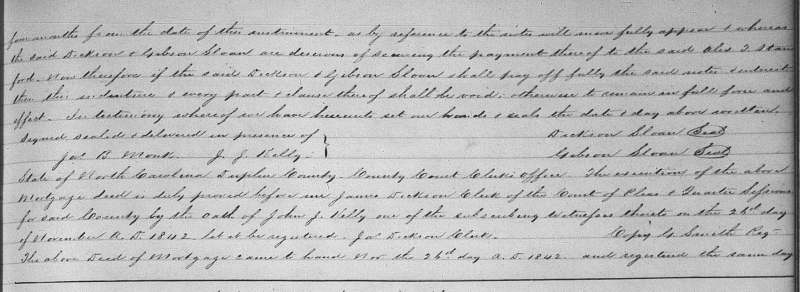 four months from the date of this instrument. as by reference to the notes will more fully appear & whereas
the said Dickson & Gibson Sloan are desirous of securing the payment thereof to the said Alex T. Stan
ford. Now therefore if the said Dickson & Gibson Sloan shall pay off fully the said notes & interest
then this indenture & every part & clause thereof shall be void. otherwise to remain in full force and
effect. In testimony whereof we have hereunto set our hands & seals the date & day above written.
Signed sealed & delivered in presence of } Dickson Sloan (Seal)
Jas B. Monk. J. J. Kelly Gibson Sloan (Seal)
State of North Carolina Duplin County. County Court Clerks Office. The execution of the above
Mortgage deed is duly proved before me James Dickson Clerk of the Court of Pleas & Quarter Sessions
for said County by the Oath of John J. Kelly one of the subscribing witnesses thereto on the 26d day
of November A. D. 1842. let it be registered. Jas Dickson Clerk. G. Smith Reg
The above Deed of Mortgage came to hand Nov the 26d day A. D. 1842. and registered the same day